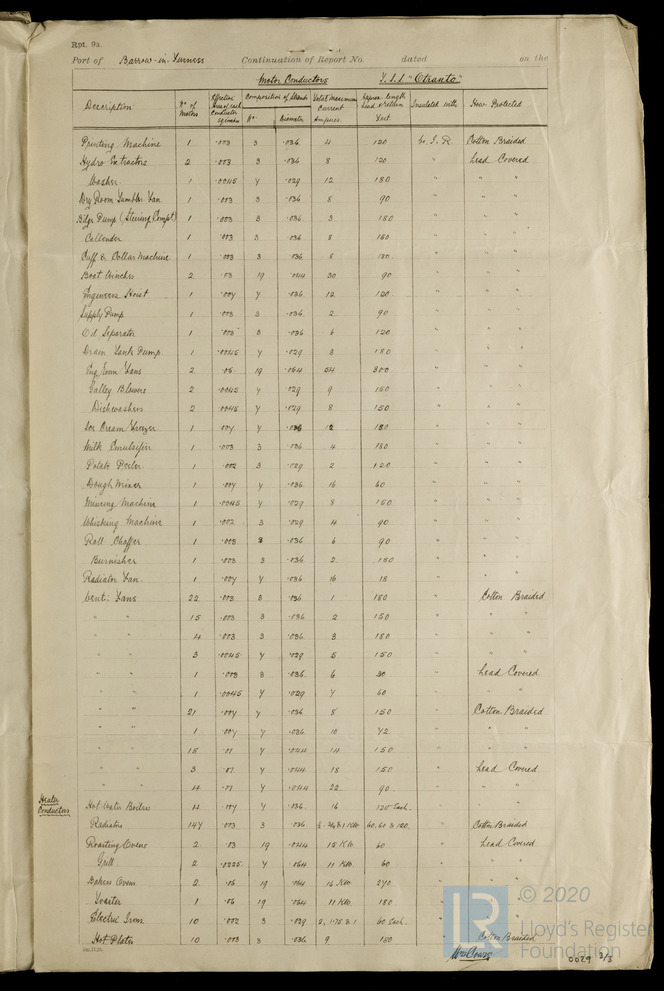 Rpt. 9a.
Port of Barrow-in-Furness Continuation of Report No. dated on the
Motor Conductors T.S.S "Otranto"
Description No of Motors Effective Area of each Conductor Sq inches Composition of Strands No. Diameter Total Maximum Current Amperes Approx. length Lead & Return Feet Insulated with How Protected
Printing Machine 1 .003 3 .036 4 120 V.I.R. Cotton Braided
Hydro Extractors 2 .003 3 .036 8 120 " Lead Covered
Washer 1 .0045 7 .029 12 180 " " "
Dry Room Tumbler Fan 1 .003 3 .036 8 90 " " "
Bilge Pump (Steering Compt) 1 .003 3 .036 3 180 " " "
Callender 1 .003 3 .036 8 150 " " "
Cuff & Collar Machine 1 .003 3 .036 8 120 " " "
Boat Winches 2 .03 19 .044 30 90 " " "
Engineers Hoist 1 .007 7 .036 12 120 " " "
Supply Pump 1 .003 3 .036 2 90 " " "
Oil Separator 1 .003 3 .036 6 120 " " "
Drain Tank Pump 1 .0045 7 .029 3 180 " " "
Eng Room Fans 2 .06 19 .064 54 300 " " "
Galley Blowers 2 .0045 7 .029 9 150 " " "
Dishwashers 2 .0045 7 .029 8 150 " " "
Ice Cream Freezer 1 .007 7 .036 12 180 " " "
Milk Emulsifier 1 .003 3 .036 4 180 " " "
Potato Peeler 1 .002 3 .029 2 120 " " "
Dough Mixer 1 .007 7 .036 16 60 " " "
Mincing Machine 1 .0045 7 .029 8 150 " " "
Whisking Machine 1 .002 3 .029 4 90 " " "
Roll Chaffer 1 .003 3 .036 6 90 " " "
Burnisher 1 .003 3 .036 2 180 " " "
Radiator Fan 1 .007 7 .036 16 18 " " "
Vent: Fans 22 .003 3 .036 1 180 " Cotton Braided
" " 15 .003 3 .036 2 150 " " "
" " 4 .003 3 .036 3 180 " " "
" " 3 .0045 7 .029 5 150 " " "
" " 1 .003 3 .036 6 30 " Lead Covered
" " 1 .0045 7 .029 7 60 " " "
" " 21 .007 7 .036 8 150 " Cotton Braided
" " 1 .007 7 .036 10 72 " " "
" " 15 .01 7 .044 14 150 " " "
" " 3 .01 7 .044 18 150 " Lead Covered
" " 4 .01 7 .044 22 90 " " "
Heater Conductors
Hot Water Boilers 4 .007 7 .036 16 120 Each " " "
Radiators 147 .003 3 .036 60, 60 & 120 " Cotton Braided
Roasting Ovens 2 .03 19 .044 15 KW. 60 " Lead Covered
Grill 2 .0225 7 .064 11 KW. 60 " " "
Bakers Ovens 2 .06 19 .064 16 KW. 270 " " "
Toaster 1 .06 19 .064 11 KW. 180 " " "
Electric Irons 10 .002 3 .029 2, 1.75 & 1 60 Each " " "
Hot Plates 10 .003 3 .036 9 180 " Cotton Braided
© 2020
LR
Lloyd's Register
Foundation
0029 3/3